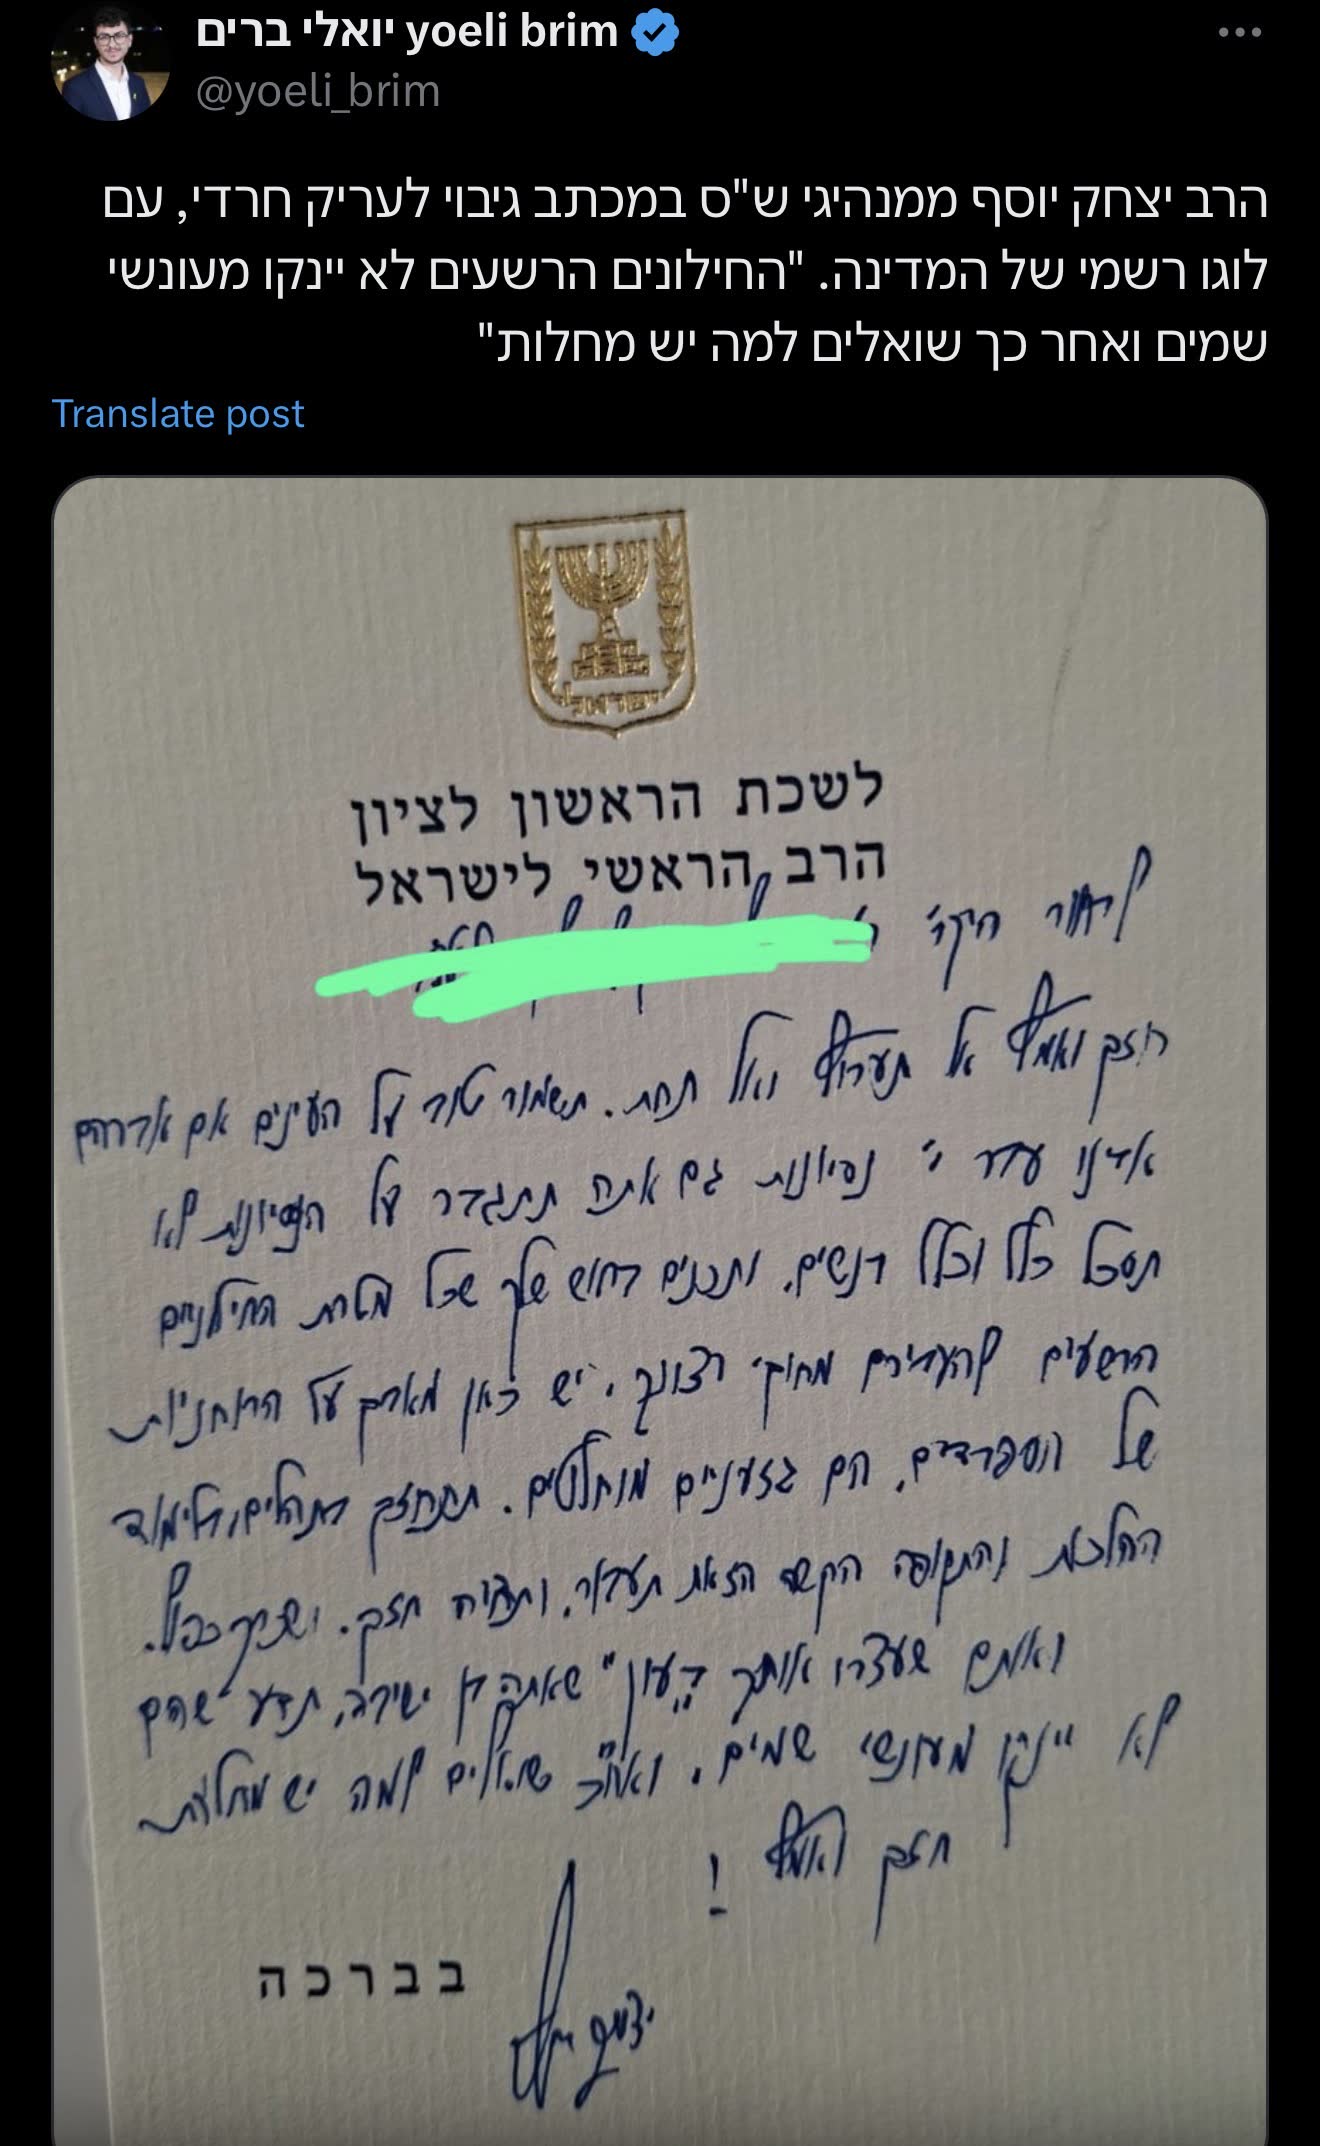 יואלי ברים yoeli brim
@yoeli_brim
הרב יצחק יוסף ממנהיגי ש"ס במכתב גיבוי לעריק חרדי, עם
לוגו רשמי של המדינה. "החילונים הרשעים לא יינקו מעונשי
שמים ואחר כך שואלים למה יש מחלות"
Translate post
ישראל
לשכת הראשון לציון
הרב הראשי לישראל
לבחור היקר
חזק ואמץ אל תערוץ ואל תחת. תשמור טוב על העינים אם אברהם
אבינו עבר י' נסיונות גם אתה תתגבר על הנסיונות לא
תסתכל כלל וכלל בנשים. ותכנים בראש שלך שכל מטרת החילוניים
הרשעים להעבירם מחוקי רצונך. יש כאן מאבק על הרוחניות
של הספרדים, הם גזעניים מוחלטים. תתחזק בתהלים, בלימוד
ההלכות והתקופה הקשה הזאת תעבור, ותהיה חזק. ושכרך כפול.
ואותם שעצרו אותך ב"עוון" שאתה בן ישיבה, תדע שהם
לא יינקו מעונשי שמים. ואח"כ שואלים למה יש מחלות
חזק ואמץ !
בברכה
יצחק יוסף